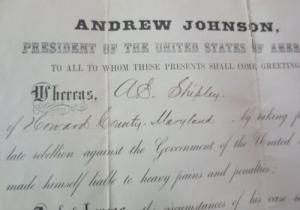 ANDREW JOHNSON,
PRESIDENT OF THE UNITED STATES OF AMERICA
TO ALL TO WHOM THESE PRESENTS SHALL COME GREETING
Whereas, A. E. Shipley
of Howard County, Maryland, by taking p
late rebellion against the Government of the United
made himself liable to heavy pains and penalties;
the circumstances of his case